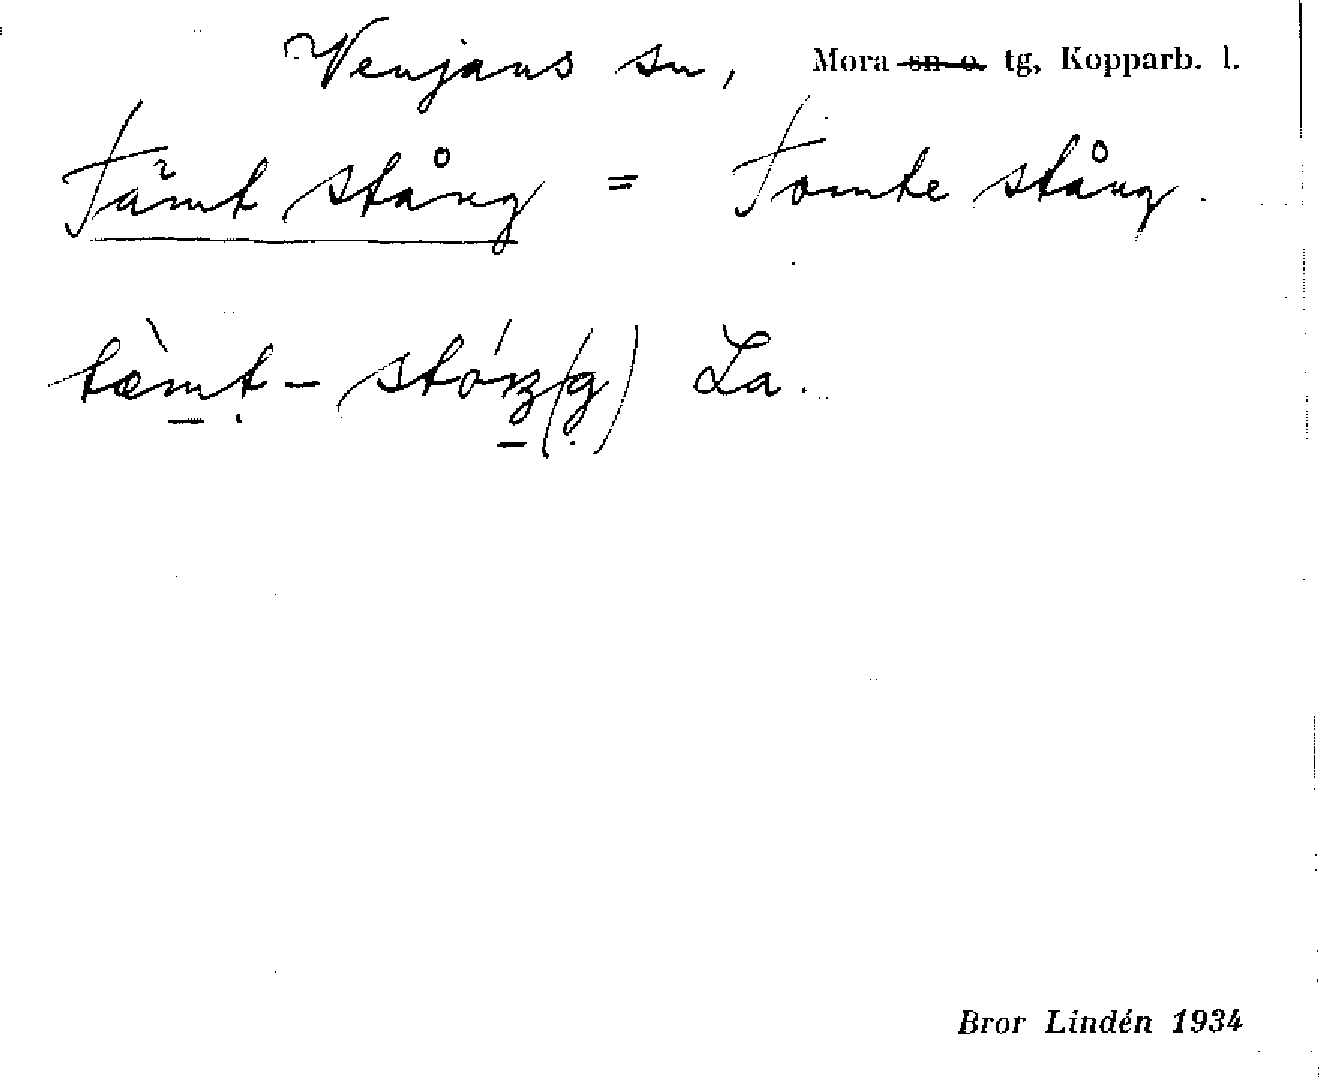 Venjans sn, Mora sn o. tg, Kopparb. l.
Tämt stång = Tomte stång.
tæ̀m̠ṭ - stóŋ̠(g̣) La.
Bror Lindén 1934